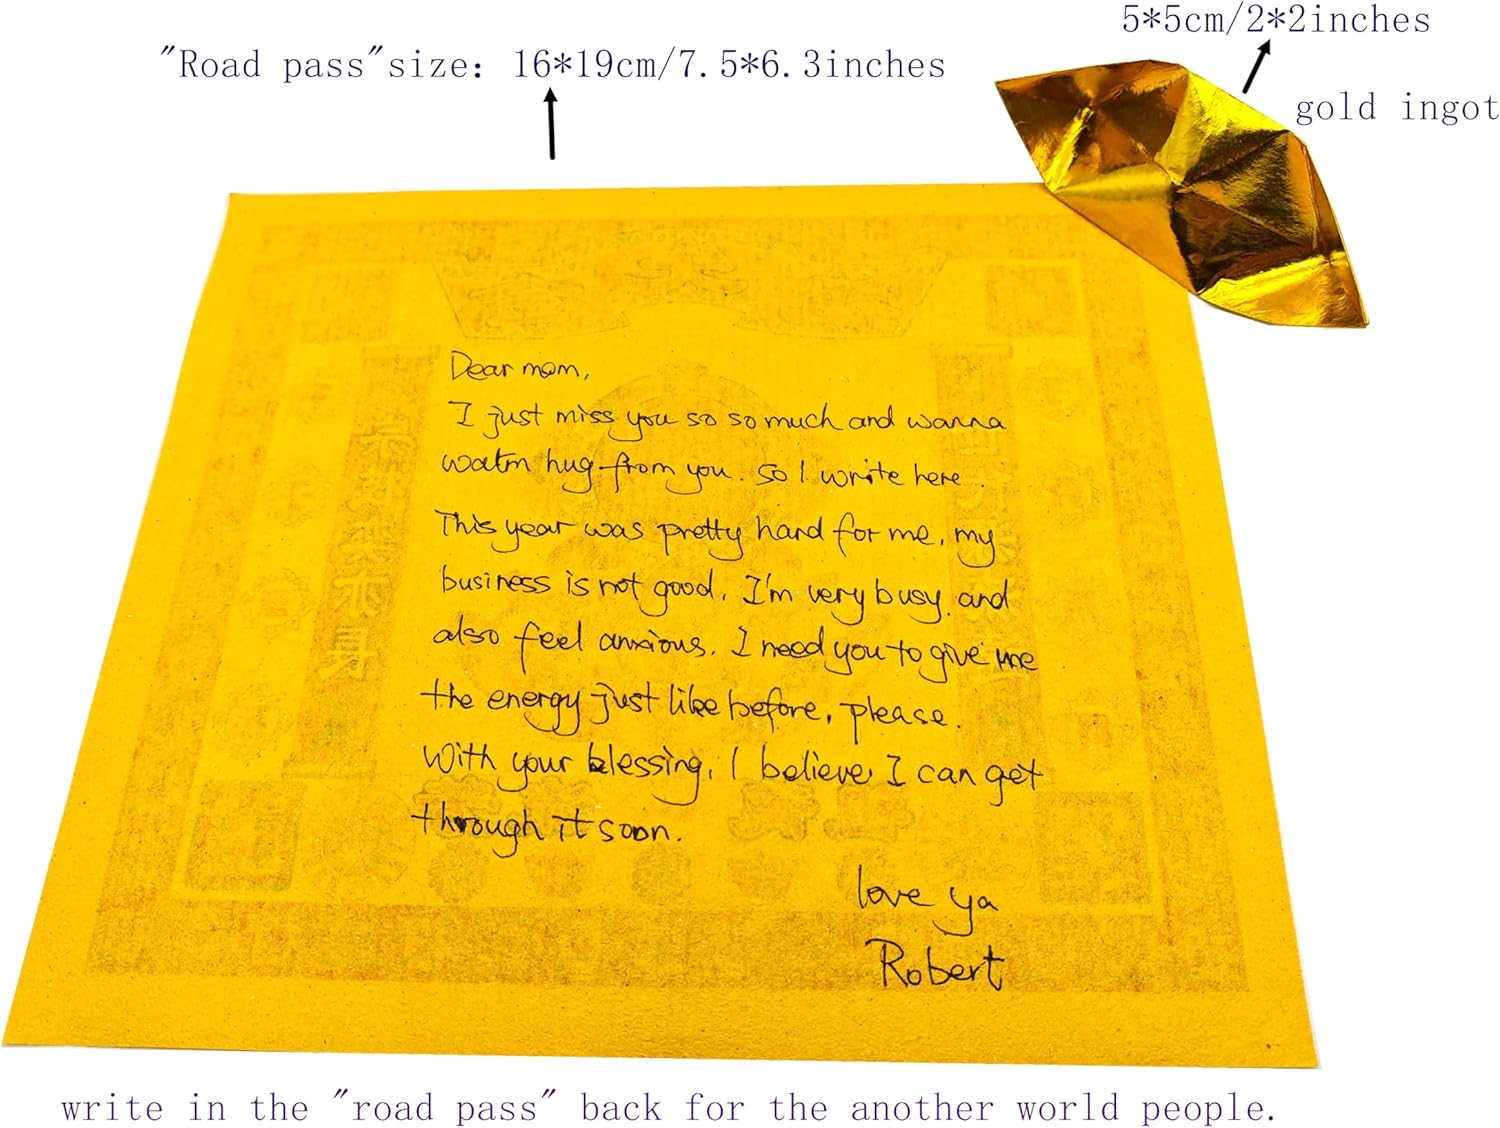 5*5cm/2*2inches
"Road pass"size: 16*19cm/7.5*6.3inches
gold ingot
Dear mom,
I just miss you so so much and wanna
watm hug from you. So I write here.
This year was pretty hard for me, my
business is not good, I'm very busy and
also feel anxious. I need you to give me
the energy just like before, please.
With your blessing, I believe I can get
through it soon.
love ya
Robert
write in the "road pass" back for the another world people.